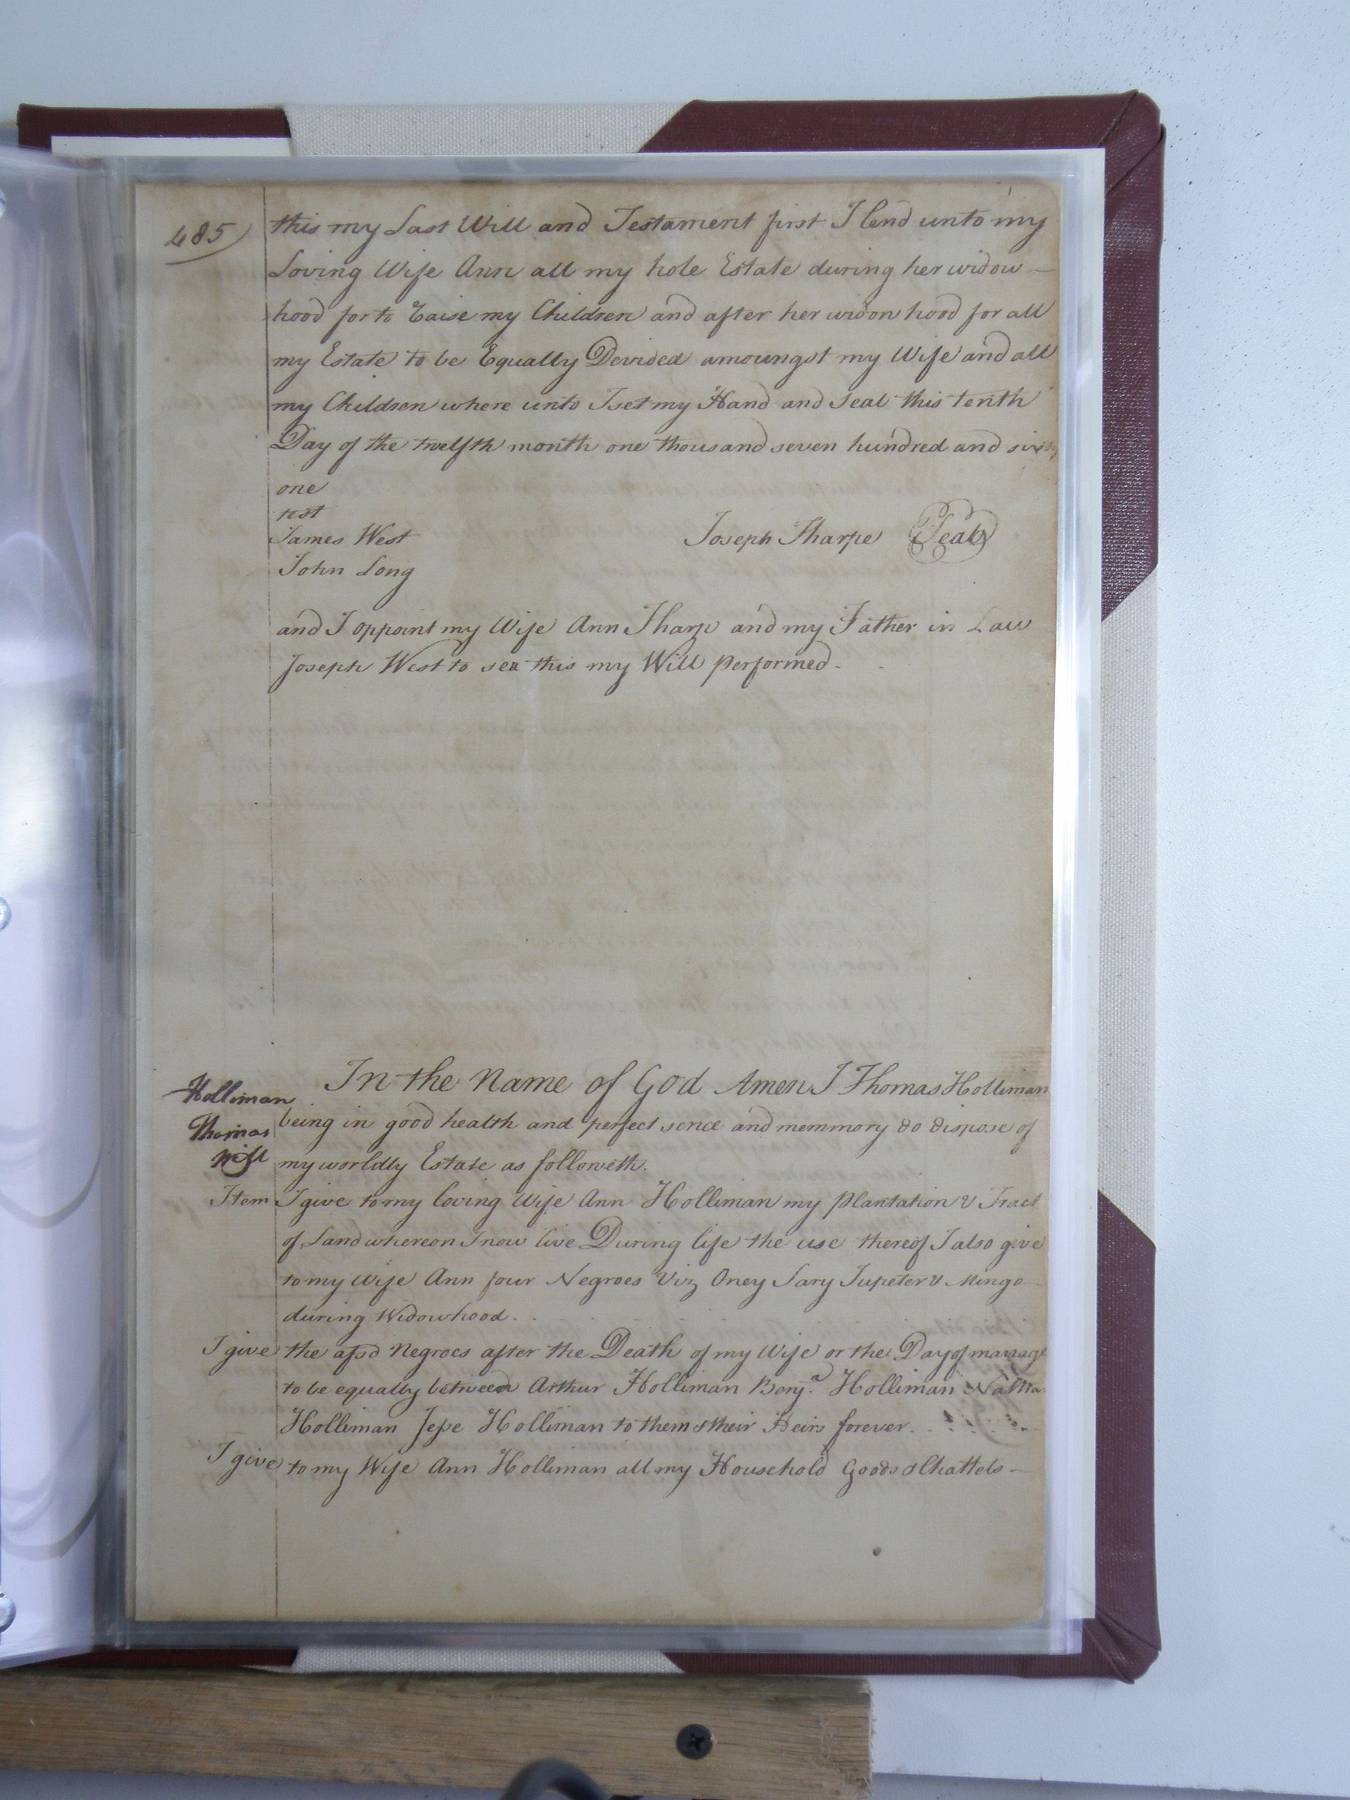 485
this my Last Will and Testament first I lend unto my
Loving Wife Ann all my hole Estate during her widow-
hood for to Raise my Children and after her widon hood for all
my Estate to be Equally Devided amoungst my Wife and all
my Children where unto I set my Hand and Seal this tenth
Day of the twelfth month one thousand seven hundred and sixty
one
test
James West Joseph Tharpe Seal
John Long
and I oppoint my Wife Ann Tharp and my Father in Law
Joseph West to see this my Will performed.
In the Name of God Amen I Thomas Holliman
Holliman Thomas Will
being in good health and perfect sence and memmory do dispose of
my worldly Estate as followeth.
Item I give to my loving Wife Ann Holliman my Plantation & Tract
of Land whereon I now live During life the use thereof I also give
to my Wife Ann four Negroes Viz Oney Sary Jupeter & Mingo
during Widowhood.
I give the afsd Negroes after the Death of my Wife or the Day of mariage
to be equally between Arthur Holliman Benja. Holliman
Holliman Jesse Holliman to them & their Heirs forever.
I give to my Wife Ann Holliman all my Household Goods & Chattels-